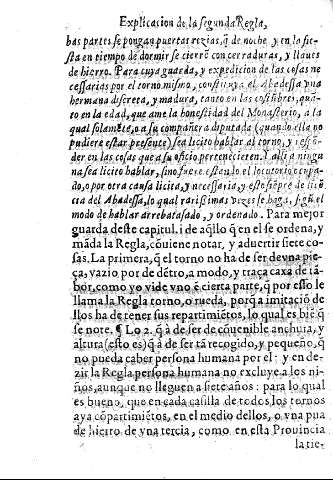 Explicacion de la segunda Regla,
bas partes se pongan puertas rezias, q̃ de noche y en la fie-
sta en tiempo de dormir se cierrẽ con cerraduras, y llaues
de hierro. Para cuya guarda, y expedicion de las cosas ne
cessarias por el torno mismo, constituya el Abadessa vna
hermana discreta, y madura, tanto en las costũbres, quã-
to en la edad, que ame la honestidad del Monasterio, a la
qual solamẽte, o a su compañera diputada (quando ella no
pudiere estar presente) sea licito hablar al torno, y respõ-
der en las cosas que a su oficio pertenecieren. I alli a ninguna
na sea licito hablar, sino fuere estando el locutorio ocupa-
do, o por otra causa licita, y necessaria, y esto siẽpre de licẽ
cia del Abadessa, lo qual rarissimas vezes se haga, segũ el
modo de hablar arrebatasado, y ordenado. Para mejor
guarda deste capitul. i de aq̃llo q̃ en el se ordena, y
mãda la Regla, cõuiene notar, y aduertir siete co-
sas. La primera, q̃ el torno no ha de ser de vna pie-
ça, vazio por de dẽtro, a modo, y traça caxa de tã-
bor, como yo vide vno ẽ cierta parte, q̃ por esso le
llama la Regla torno, o rueda, porq̃ a imitació de
llos ha de tener sus repartimiẽtos, lo qual es biẽ q̃
se note. ¶ Lo 2. q̃ à de ser de cõuenible anchura, y
altura (esto es) q̃ à de ser tã recogido, y pequeño, q̃
no pueda caber persona humana por el: y en de-
zir la Regla persona humana no excluye a los ni-
ños, aunque no lleguen a siete años: para lo qual
es bueno, que en cada casilla de todos los tornos
aya cõpartimiẽtos, en el medio dellos, o vna pua
de hierro de vna tercia, como en esta Prouincia
la tie-